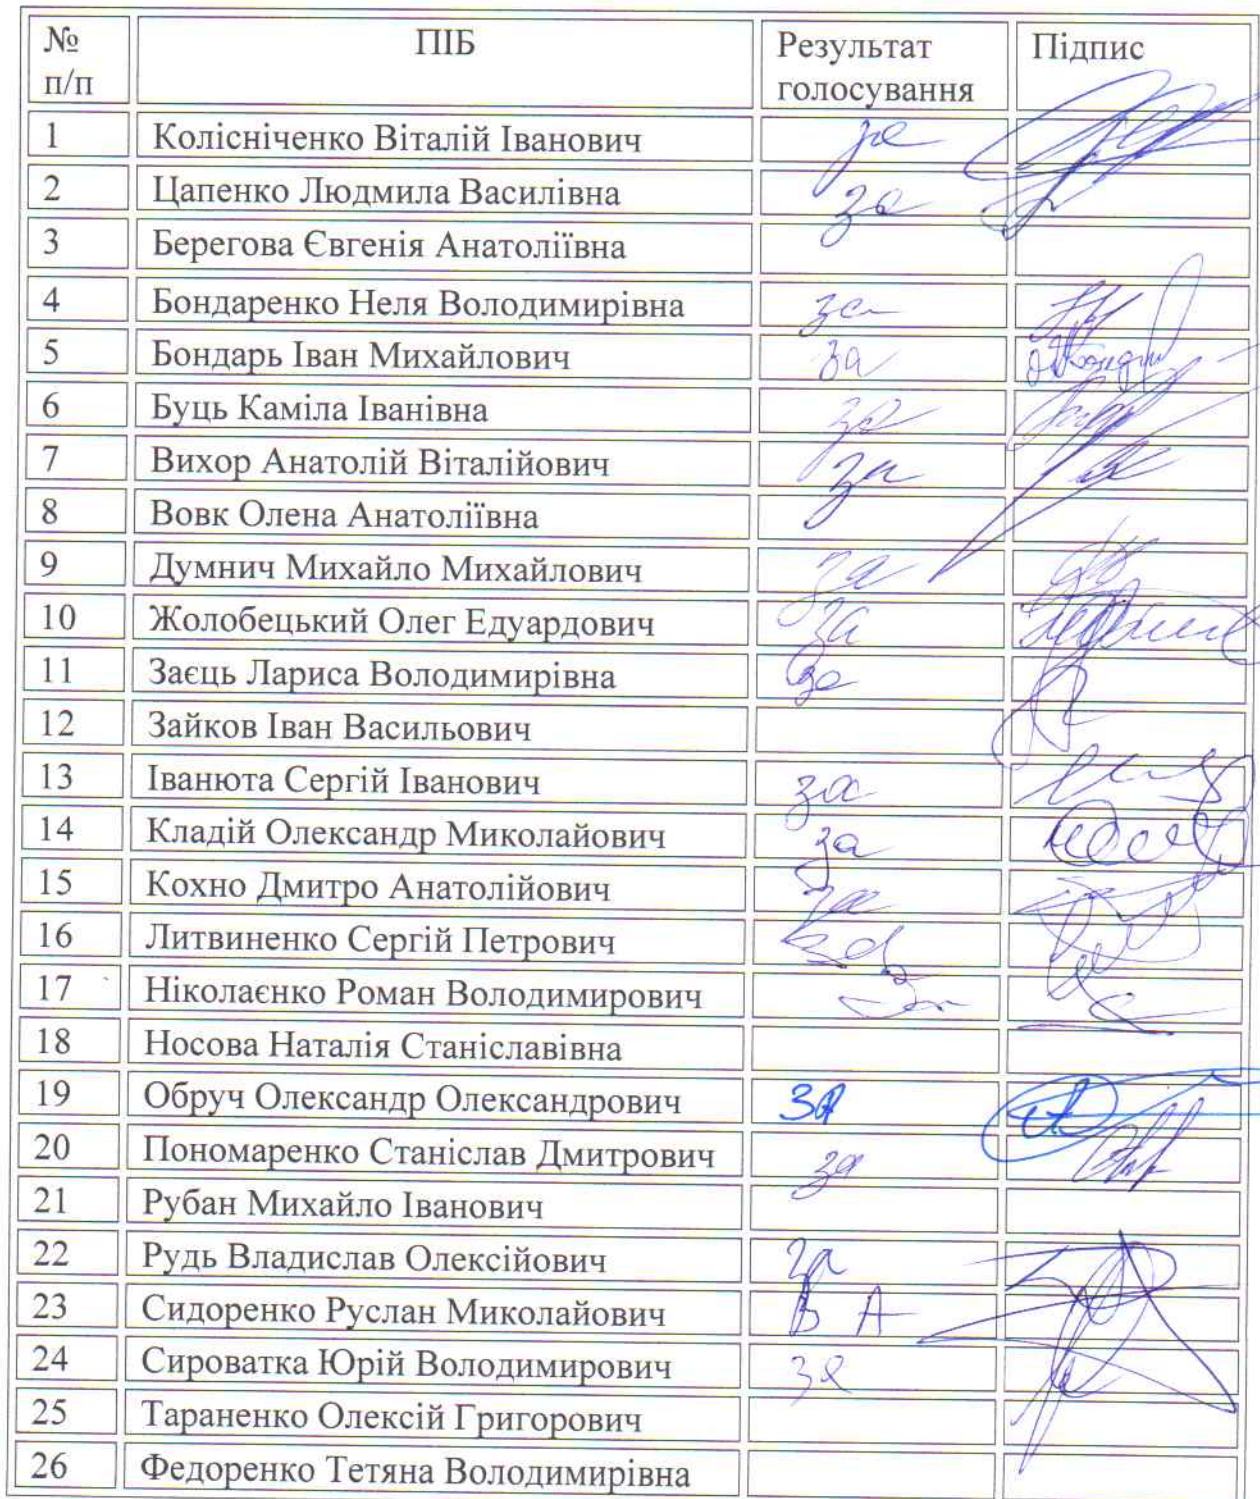 № п/п ПІБ Результат голосування Підпис
1 Колісніченко Віталій Іванович за
2 Цапенко Людмила Василівна за
3 Берегова Євгенія Анатоліївна
4 Бондаренко Неля Володимирівна за
5 Бондарь Іван Михайлович за
6 Буць Каміла Іванівна за
7 Вихор Анатолій Віталійович за
8 Вовк Олена Анатоліївна
9 Думнич Михайло Михайлович за
10 Жолобецький Олег Едуардович за
11 Заєць Лариса Володимирівна за
12 Зайков Іван Васильович
13 Іванюта Сергій Іванович за
14 Кладій Олександр Миколайович за
15 Кохно Дмитро Анатолійович за
16 Литвиненко Сергій Петрович за
17 Ніколаєнко Роман Володимирович за
18 Носова Наталія Станіславівна
19 Обруч Олександр Олександрович ЗА
20 Пономаренко Станіслав Дмитрович за
21 Рубан Михайло Іванович
22 Рудь Владислав Олексійович за
23 Сидоренко Руслан Миколайович
24 Сироватка Юрій Володимирович за
25 Тараненко Олексій Григорович
26 Федоренко Тетяна Володимирівна